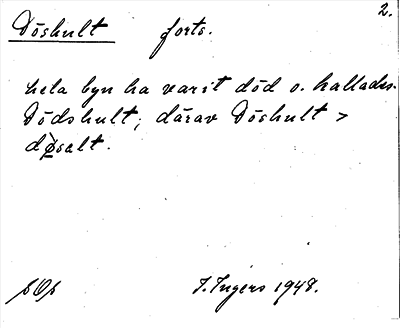 2.
Döshult forts.
hela byn ha varit död o. kallades
Dödshult; därav Döshult >
døsalt.
sOs
I. Ingers 1948.